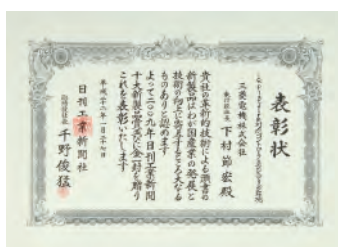 表彰状
三菱電機株式会社
下村節宏殿
貴社の革新的技術による頭書の
新製品はわが国産業の発展と
技術の向上に寄与するところ大なる
ものありと認めます
よって二〇〇九年日刊工業新聞
十大新製品賞並びに金一封を贈り
これを表彰いたします
平成二十二年一月二十七日
日刊工業新聞社
千野俊猛